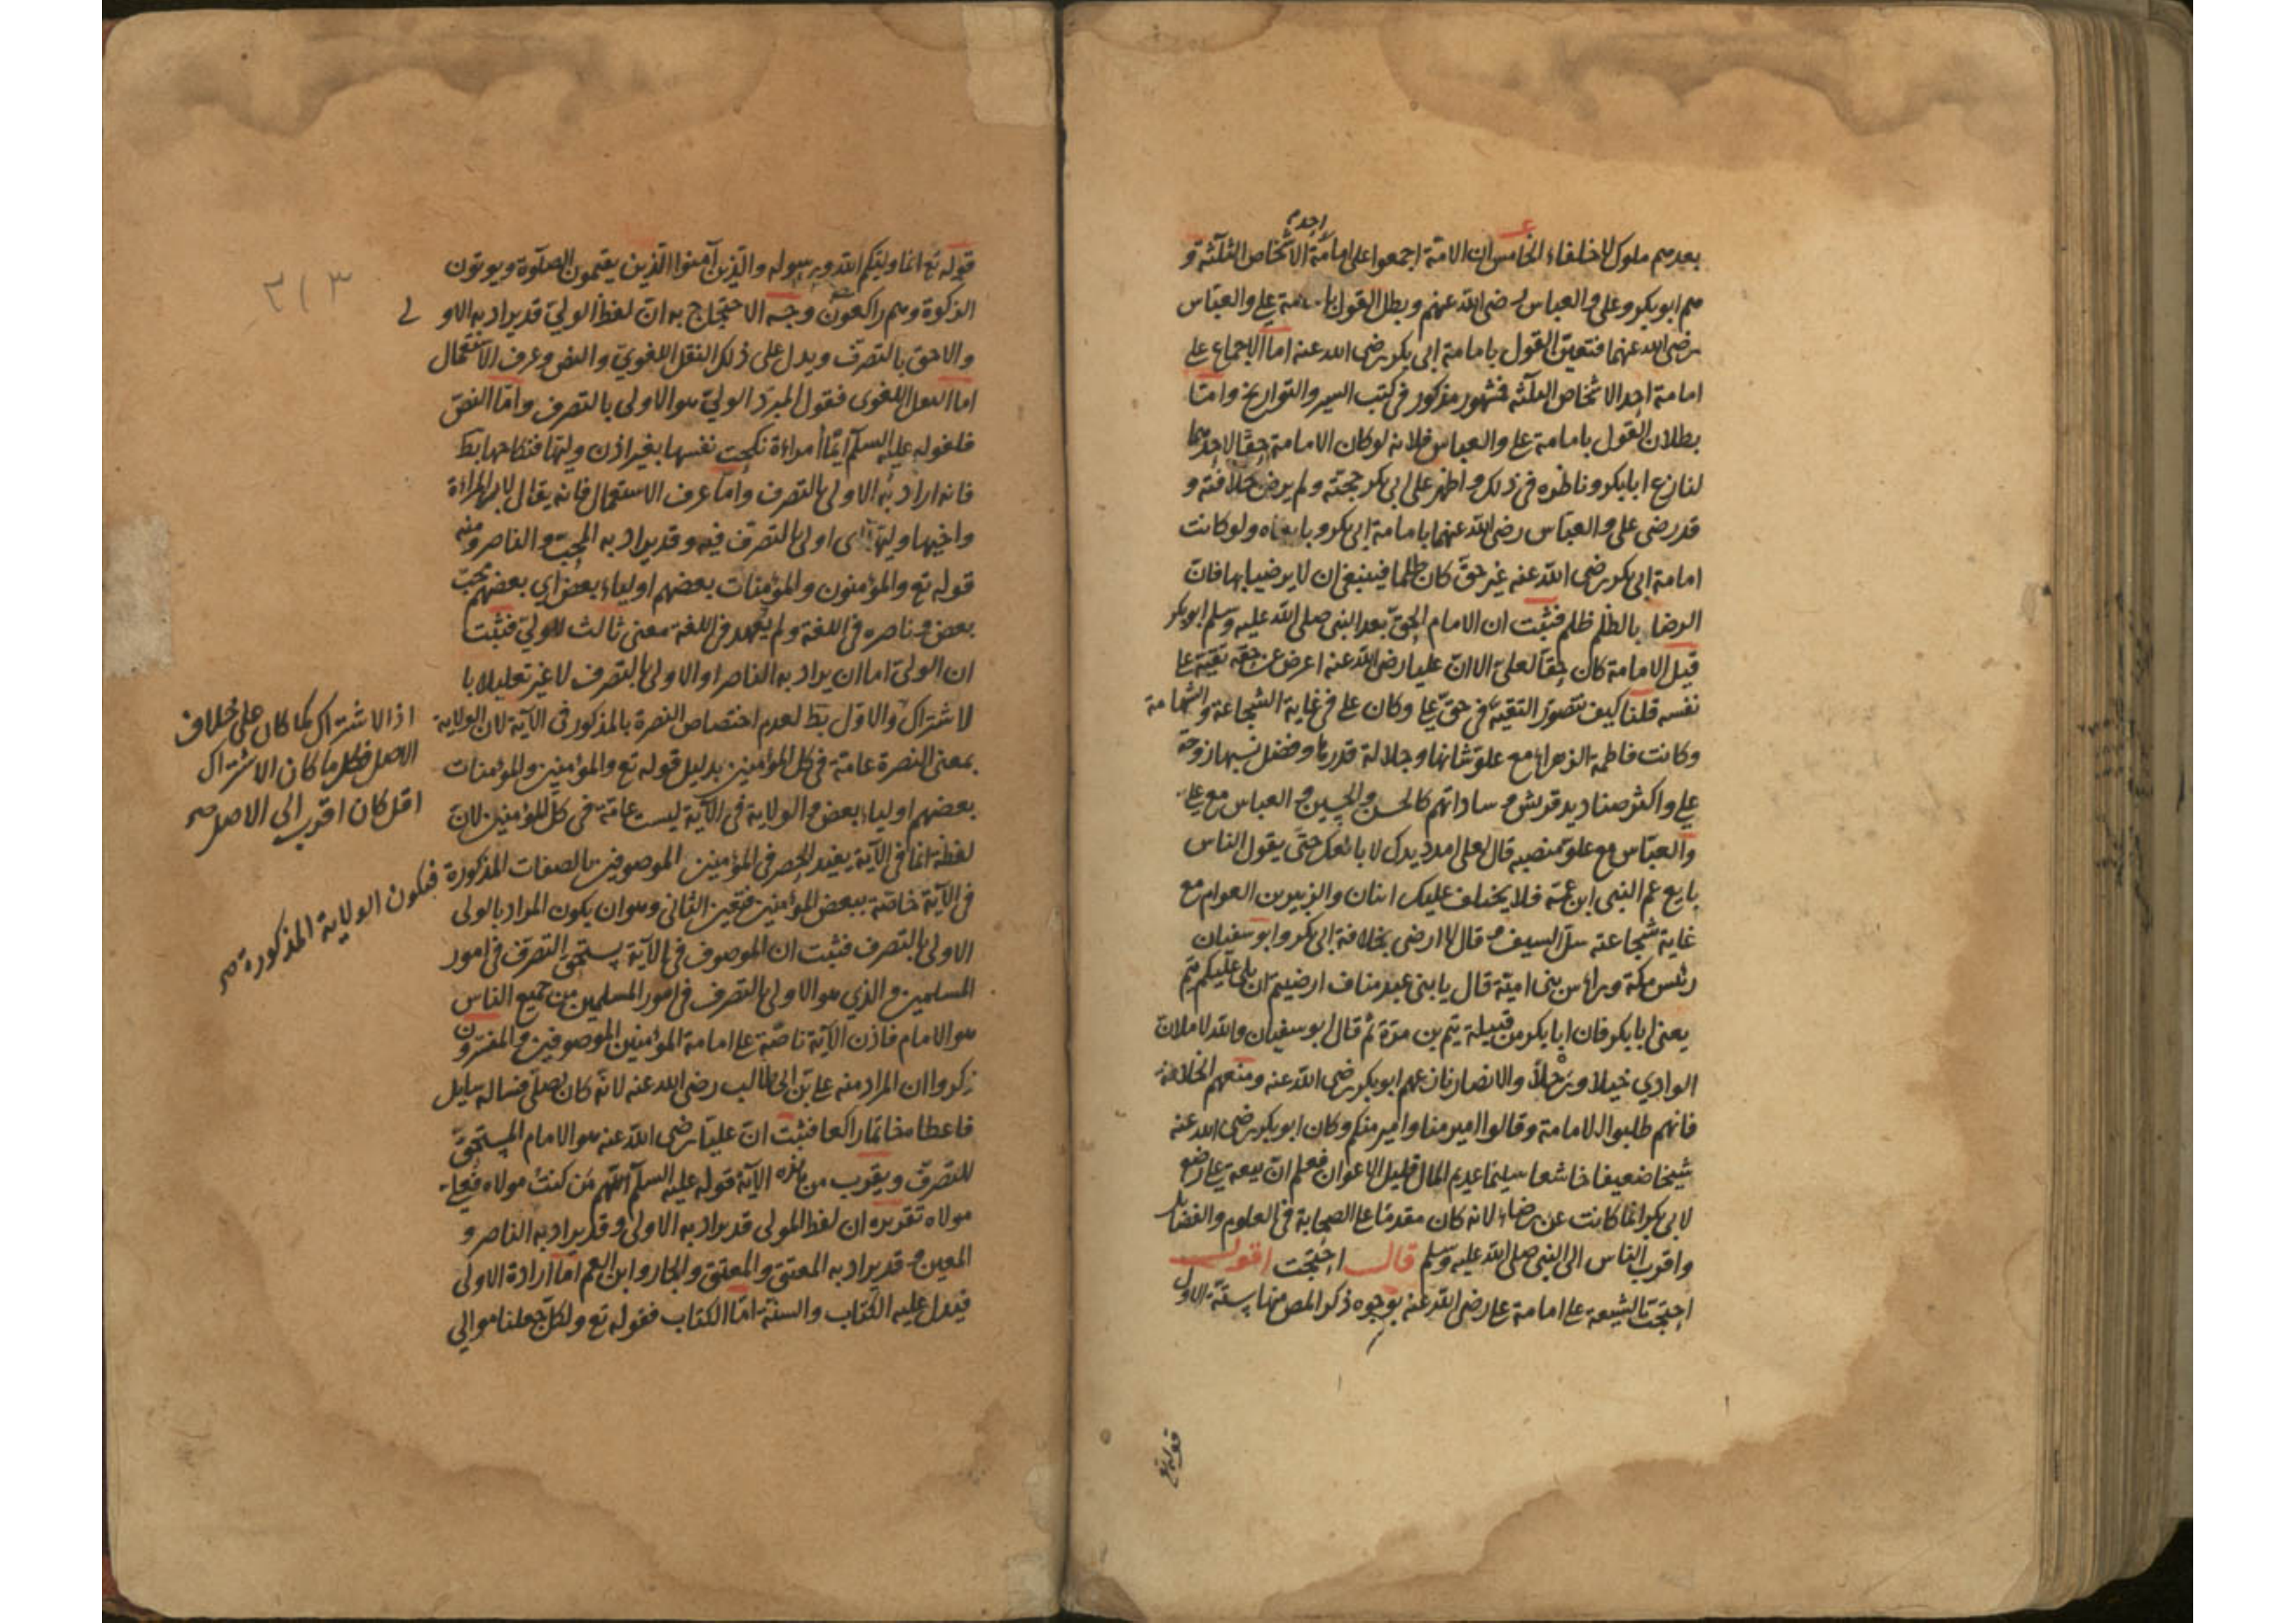 احد
بعدهم ملوك لا خلفاء الخامس ان الامة اجمعوا على امامة الاشخاص الثلثة و
هم ابو بكر وعلى والعباس رضى الله عنهم وبطل القول بامامة على والعباس
رضى الله عنهما فتعين القول بامامة ابى بكر رضى الله عنه اما الاجماع على
امامة احد الاشخاص الثلثه فمشهور مذكور فى كتب السير والتواريخ وامّا
بطلان القول بامامة على والعباس فلانه لو كان الامامة حقا لاحدهما
لنازع ابا بكر وناظره فى ذلك واظهر على ابى بكر حجته ولم يرض بخلافته و
قد رضى على والعباس رضى الله عنهما بامامة ابى بكر وبايعاه ولو كانت
امامة ابى بكر رضى الله عنه غير حق كان ظلما فينبغى ان لا يرضيا بها فان
الرضا بالظلم ظلم فثبت ان الامام الحق بعد النبى صلى الله عليه وسلم ابو بكر
قيل الامامة كان حقا لعلى الا ان عليا رضى الله عنه اعرض عن حقه تقية على
نفسه قلنا كيف تتصور التقية فى حق على وكان على فى غاية الشجاعة والشهامة
وكانت فاطمة الزهراء مع علو شانها وجلالة قدرها وفضل نسبها زوجة
على واكثر صناديد قريش وساداتهم كالحسن والحسين والعباس مع على
والعباس مع علو منصبه قال لعلى امدد يدك لابايعك حتى يقول الناس
بايع عم النبى ابن عمه فلا يختلف عليك اثنان والزبير بن العوام مع
غاية شجاعته سل السيف وقال لا ارضى بخلافة ابى بكر وابو سفيان
رئيس مكة وراس بنى امية قال يا بنى عبد مناف ارضيتم ان يلى عليكم تيم
يعنى ابا بكر فان ابا بكر من قبيلة تيم بن مرة ثم قال ابو سفيان والله لاملان
الوادي خيلا ورجلاً والانصار نازعهم ابو بكر رضى الله عنه ومنعهم الخلافة
فانهم طلبوا الامامة وقالوا امير منا وامير منكم وكان ابو بكر رضى الله عنه
شيخا ضعيفا خاشعا سليما عديم المال قليل الاعوان فعلم ان بيعة على رضع
لابى بكر انما كانت عن رضاء لانه كان مقدما على الصحابة فى العلوم والفضايل
واقرب الناس الى النبى صلى الله عليه وسلم قال احتجت اقول
احتجت الشيعة على امامة على رضى الله عنه بوجوه ذكر المص منها ستة الاول
قوله تع
٣١٣
قوله تع انما وليكم الله ورسوله والذين آمنوا الذين يقيمون الصلوة ويوتون
الزكوة وهم راكعون وجه الاحتجاج به ان لفظ الولي قد يراد به الاولى
والاحق بالتصرف ويدل على ذلك النقل اللغوي والنص وعرف الاستعمال
اما النقل اللغوى فقول المبرد الولي هو الاولى بالتصرف واما النص
فلقوله عليه السلم ايما امراة نكحت نفسها بغير اذن وليها فنكاحها بط
فانه اراد به الاولى بالتصرف واما عرف الاستعمال فانه يقال لاب المراة
واخيها وليها اى اولى بالتصرف فيه وقد يراد به المحب والناصر ومنه
قوله تع والمؤمنون والمؤمنات بعضهم اولياء بعض اي بعضهم محب
بعض وناصره فى اللغة ولم يعهد فى اللغة معنى ثالث للولي فثبت
ان الولي اما ان يراد به الناصر او الاولى بالتصرف لا غير تعليلا با
لاشتراك والاول بط لعدم اختصاص النصرة بالمذكور فى الآية لان الولاية
بمعنى النصرة عامة فى كل المؤمنين بدليل قوله تع والمؤمنين والمؤمنات
بعضهم اولياء بعض والولاية فى الآية ليست عامة فى كل المؤمنين لان
لفظة انما فى الآية يفيد الحصر فى المؤمنين الموصوفين بالصفات المذكورة
فى الآية خاصة ببعض المؤمنين فتعين الثانى وهو ان يكون المراد بالولى
الاولى بالتصرف فثبت ان الموصوف فى الآية يستحق التصرف فى امور
المسلمين والذي هو الاولى بالتصرف فى امور المسلمين من جميع الناس
هو الامام فاذن الآية ناصة على امامة المؤمنين الموصوفين والمفسرون
ذكروا ان المراد منه على بن ابى طالب رضى الله عنه لانه كان يصلى فساله سايل
فاعطاه خاتما راكعا فثبت ان عليا رضى الله عنه هو الامام المستحق
للتصرف ويقرب من هذه الآية قوله عليه السلم اللهم من كنت مولاه فعلى
مولاه تقريره ان لفظ المولى قد يراد به الاولى وقد يراد به الناصر و
المعين وقد يراد به المعتق والمعتق والجار وابن العم اما ارادة الاولى
فيدل عليه الكتاب والسنة اما الكتاب فقوله تع ولكل جعلنا موالي
اذ الاشتراك لما كان على خلاف
الاصل فكل ما كان الاشتراك
اقل كان اقرب الى الاصل صح
فيكون الولاية المذكورة صح